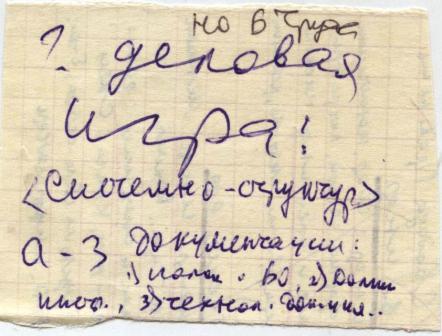 но в
? деловая
игра!
<Системно-структур>
а-3 документации:
1) полож. ВО, 2) Должн
инст., 3) технол. док-ция..